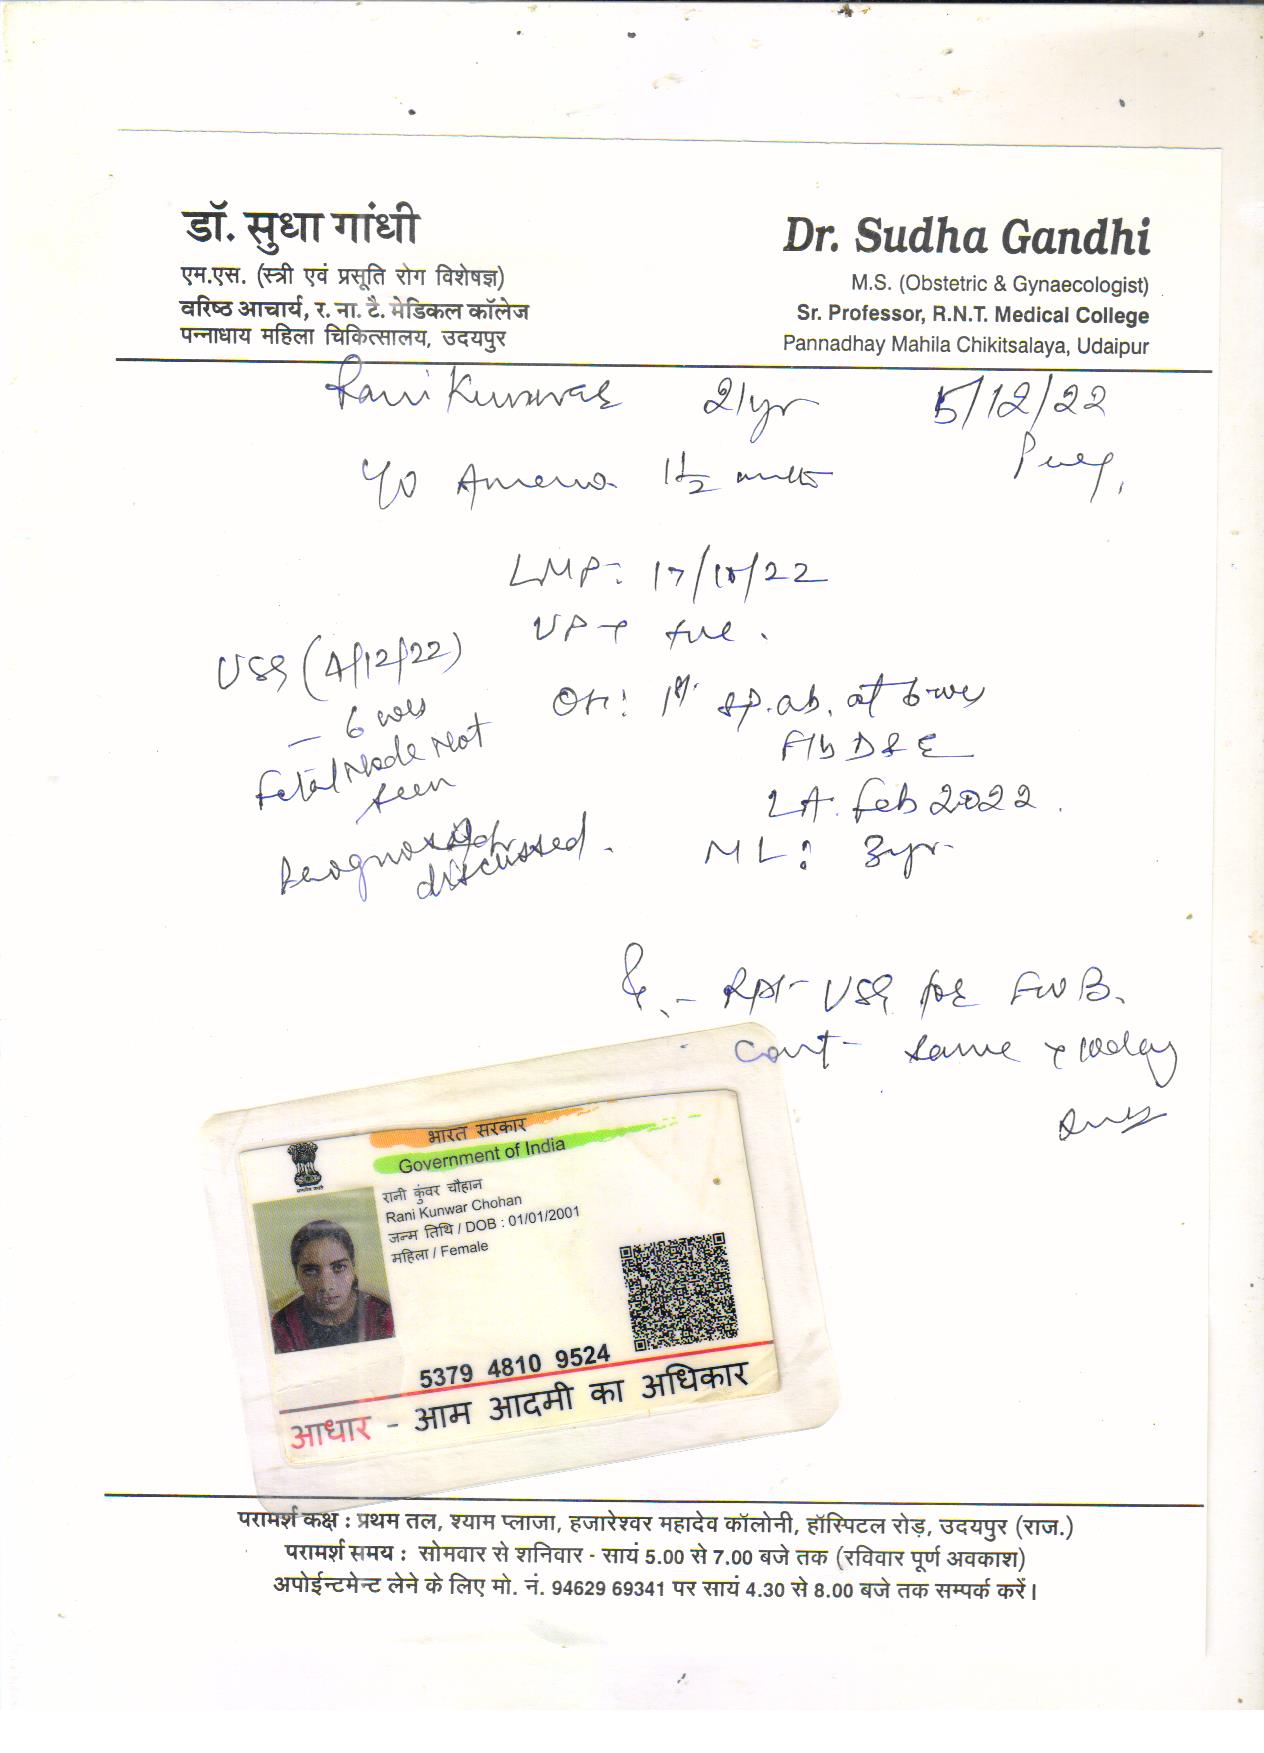 डॉ. सुधा गांधी
एम.एस. (स्त्री एवं प्रसूति रोग विशेषज्ञ)
वरिष्ठ आचार्य, र. ना. टै. मेडिकल कॉलेज
पन्नाधाय महिला चिकित्सालय, उदयपुर
Dr. Sudha Gandhi
M.S. (Obstetric & Gynaecologist)
Sr. Professor, R.N.T. Medical College
Pannadhay Mahila Chikitsalaya, Udaipur
Rani Kunwar 21yr 5/12/22
1½
LMP: 17/10/22
UPT +ve.
USG (4/12/22)
- 6 wks
Fetal Node Not
seen
discussed.
OH: 1st sp.ab. at 6 wks
F/b D & E
LA. Feb 2022.
ML: 3yr.
Rx - Rpt USG for FWB.
Cont same
भारत सरकार
Government of India
रानी कुंवर चौहान
Rani Kunwar Chohan
जन्म तिथि / DOB : 01/01/2001
महिला / Female
5379 4810 9524
आधार - आम आदमी का अधिकार
परामर्श कक्ष : प्रथम तल, श्याम प्लाजा, हजारेश्वर महादेव कॉलोनी, हॉस्पिटल रोड़, उदयपुर (राज.)
परामर्श समय : सोमवार से शनिवार - सायं 5.00 से 7.00 बजे तक (रविवार पूर्ण अवकाश)
अपोईन्टमेन्ट लेने के लिए मो. नं. 94629 69341 पर सायं 4.30 से 8.00 बजे तक सम्पर्क करें।